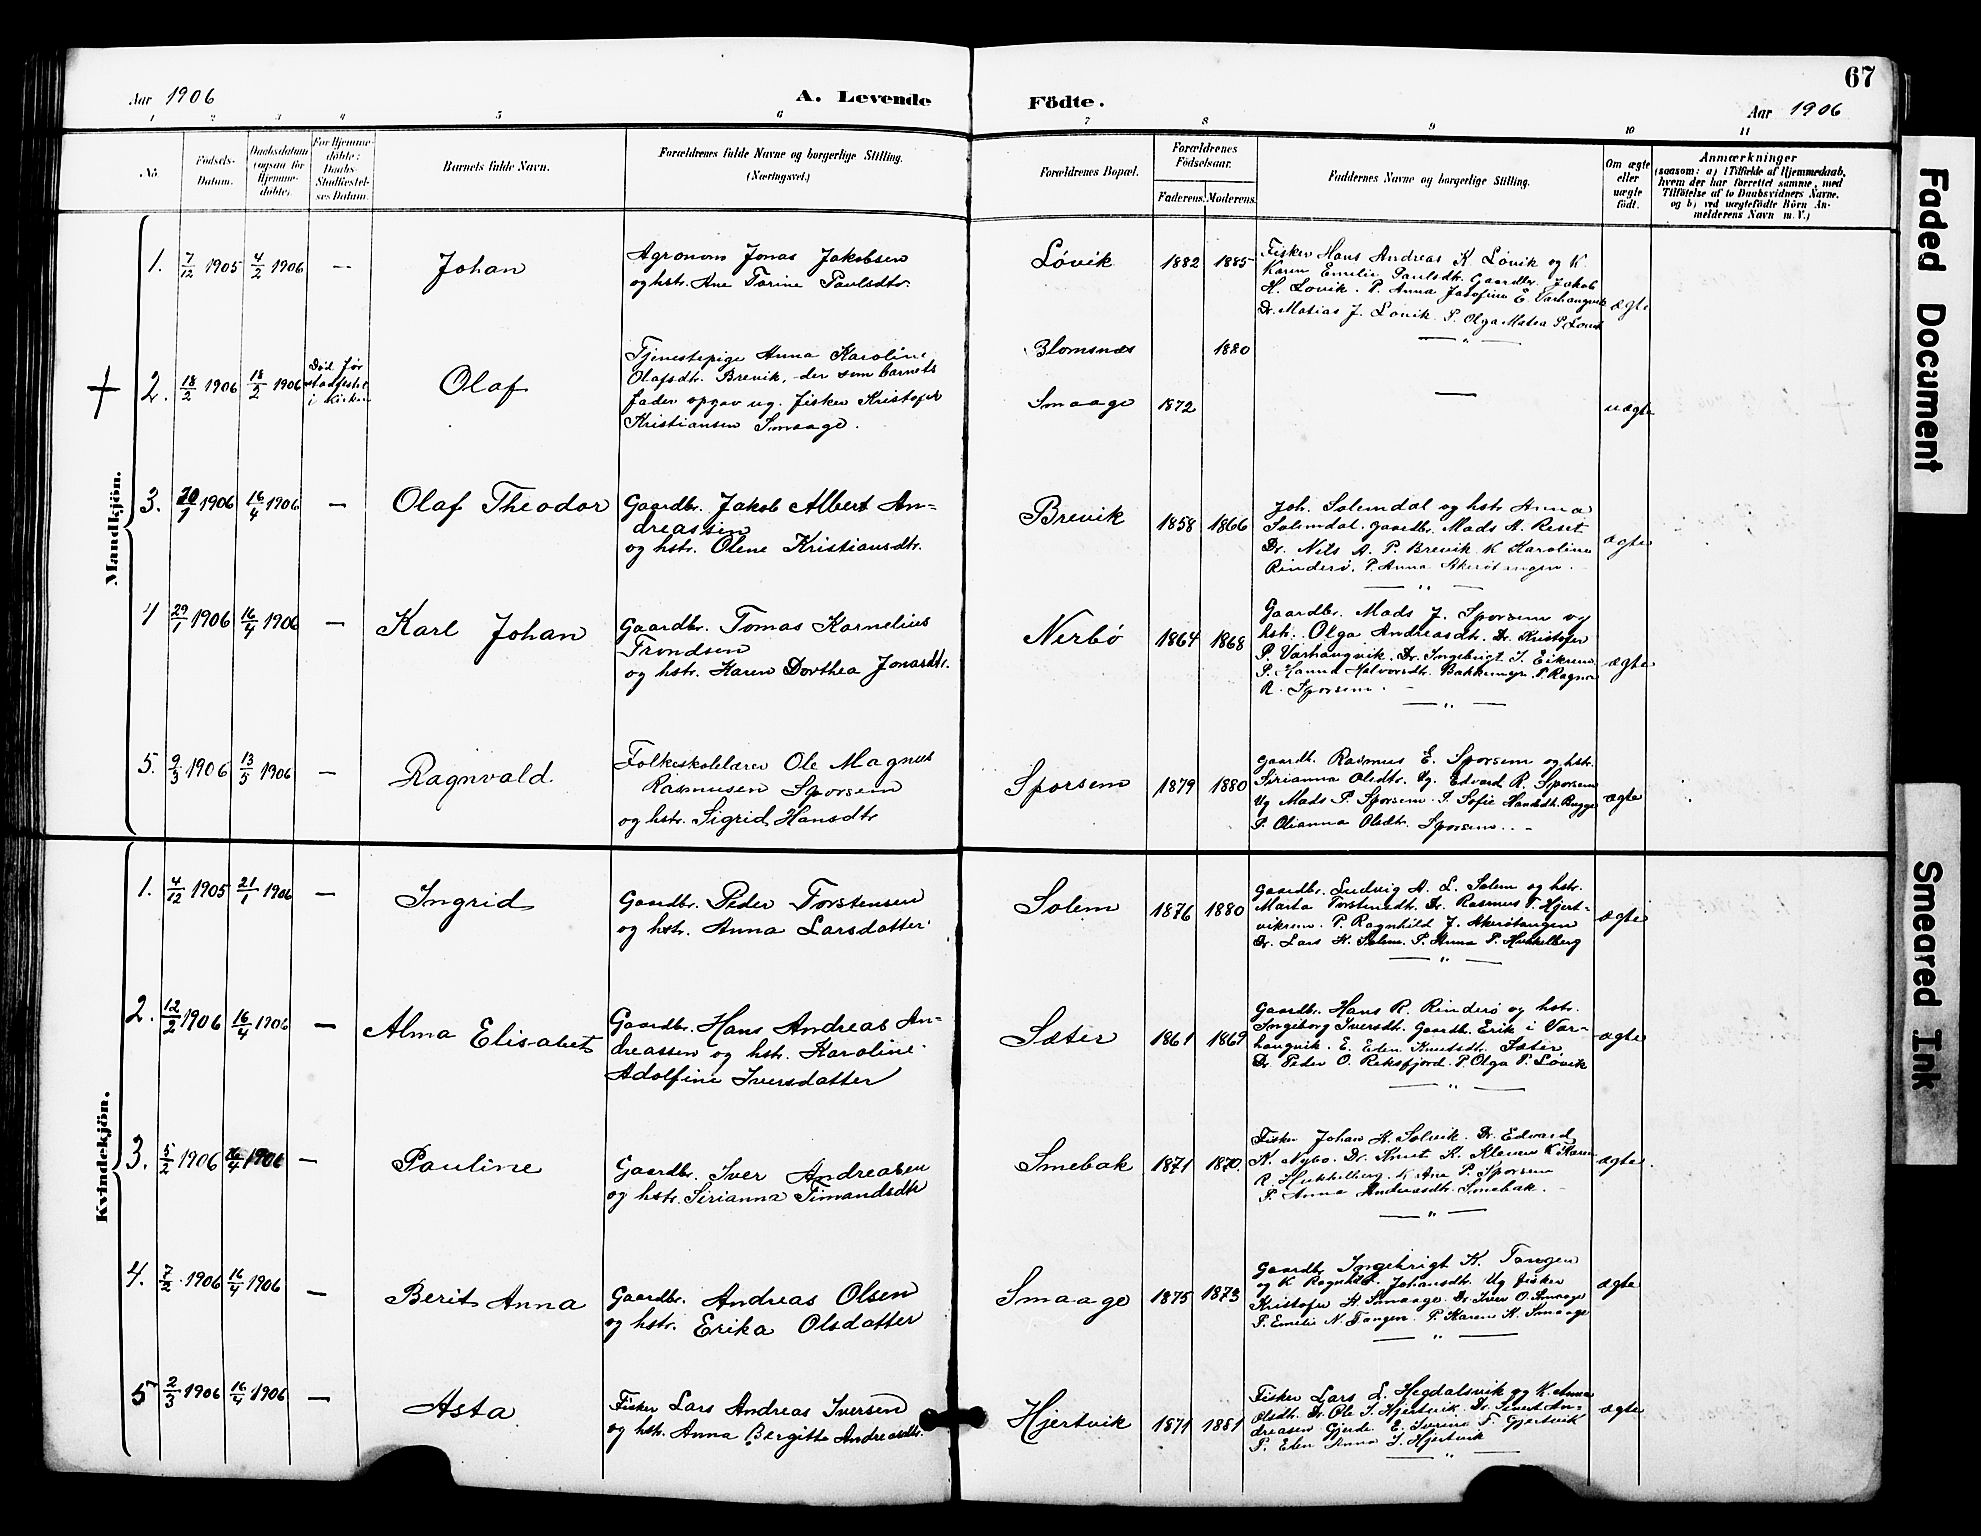 67
Aar 1906
A. Levende
Födte.
Aar 1906
1 2 3 4 5 6 7 8 9 10 11
No
Födsels-
Datum.
Daabsdatum
(ogsaa for
Hjemme-
döbte).
For Hjemme-
döbte:
Daabs-
Stadfæstel-
ses Datum.
Barnets fulde Navn.
Forældrenes fulde Navne og borgerlige Stilling.
(Næringsvei.)
Forældrenes Bopæl.
Forældrenes
Födselsaar.
Faderens. Moderens.
Faddernes Navne og borgerlige Stilling.
Om ægte
eller
uægte
födt.
Anmærkninger
(saasom: a) i Tilfælde af Hjemmedaab,
hvem der har forrettet samme, med
Tilföielse af to Daabsvidners Navne,
og b) ved uægtefödte Börn An-
melderens Navn m. V.)
Mandkjön.
1. 7/12 1905 4/2 1906 — Johan
Agronom Jonas Jakobsen
og hstr. Ane Torine Paulsdtr.
Løvik 1882 1885
Fisker Hans Andreas K. Løvik og K
Karen Emilie Paulsdtr. Gaardbr. Jakob
H. Løvik. P. Anna Josofine E. Varhangvik
Dr. Matias J. Løvik. P. Olga Matea P. Løvik
— " —
ægte
+ 2. 18/2 1906 18/2 1906
Död før
stadfestet
i kirken
Olaf
Tjenestepige Anna Karoline
Olafsdtr. Brevik, der som barnets
fader opgav ug. fisker Kristofer
Kristiansen Smaage.
Blomsnæs 1880
Smaage 1872
—
uægte
3. 30/1 1906 16/4 1906 — Olaf Theodor
Gaardbr. Jakob Albert An=
dreassen
og hstr. Olene Kristiansdtr.
Brevik 1858 1866
Joh. Solemdal og hstr Anna
Solemdal. gaardbr. Mads A. Reset
Dr. Nils A. P. Brevik K Karoline
Rinderø. P. Anna Akerøtangen.
— " —
ægte
4 29/1 1906 16/4 1906 — Karl Johan
Gaardbr. Tomas Kornelius
Trondsen
og hstr. Karen Dorthea Jonasdtr.
Nerbø 1864 1868
Gaardbr. Mads J. Sporsem og
hstr. Olga Andreasdtr. Dr. Kristofer
P. Varhangvik. Dr. Ingebrigt I. Eikrem
P. Hanna Halvorsdtr. Bakkemyr. P. Ragna
R. Sporsem.
— " —
ægte
5. 9/3 1906 13/5 1906 — Ragnvald
Folkeskolelærer Ole Magnus
Rasmusen Sporsem
og hstr. Sigrid Hansdtr
Sporsem 1879 1880
Gaardb. Rasmus E. Sporsem og hstr.
Sirianna Olsdtr. Ug. Edvard R. Sporsem
Ug Mads P. Sporsem. P. Sofie Hansdtr. Bugge
P. Olianna Olsdtr. Sporsem.
ægte
Kvindekjön.
1. 4/12 1905 21/1 1906 — Ingrid
Gaardbr. Peder Torstensen
og hstr. Anna Larsdatter
Solem 1876 1880
Gaardbr. Ludvig A. L. Solem og hstr.
Marta Torstensdtr. Dr. Rasmus T. Hjert=
vikrem. P. Ragnhild J. Akerøtangen
Dr. Lars K. Solem. P. Anna P. Hukkelberg
— " —
ægte
2. 12/2 1906 16/4 1906 — Alma Elisabet
Gaardbr. Hans Andreas An=
dreassen og hstr. Karoline
Adolfine Iversdatter
Sæter 1861 1869
Gaardbr. Hans R. Rinderø og hstr.
Ingeborg Iversdtr. Gaardb. Erik i Var=
hangvik. E. Eden Knutsdtr. Sæter
Dr. Peder O. Reksfjord. P. Olga P. Løvik
— " —
ægte
3. 5/2 1906 16/4 1906 — Pauline
Gaardbr. Iver Andreasen
og hstr. Sirianna Timandsdtr
Smebak 1871 1870
Fisker Johan H. Solvik. Dr. Edvard
K. Nybø. Dr. Knut K. K Karen
R. Hukkelberg. K Ane P. Sporsem
P. Anna Andreasdtr. Smebak.
— " —
ægte
4. 7/2 1906 16/4 1906 — Berit Anna
Gaardbr. Andreas Olsen
og hstr. Erika Olsdatter
Smaage 1875 1873
Gaardbr Ingebrigt K. Tangen
og K Ragnhild Johansdtr. Ug fisker
Kristofer H. Smaage. Dr. Iver O. Smaage
P. Emilie N. Tangen. P. Karen K. Smaage
— " —
ægte
5 2/3 1906 16/4 1906 — Asta
Fisker Lars Andreas Iversen
og hstr. Anna Bergitte Andreasdtr.
Hjertvik 1871 1881
Fisker Lars L. Hegdalsvik og K. Anna
Olsdtr. Dr. Ole I. Hjertvik. Dr. Sivert An=
dreasen Gjerde. E. Iverine T. Gjertvik
P. Eden Anna I. Hjertvik
— " —
ægte
Faded Document
Smeared Ink